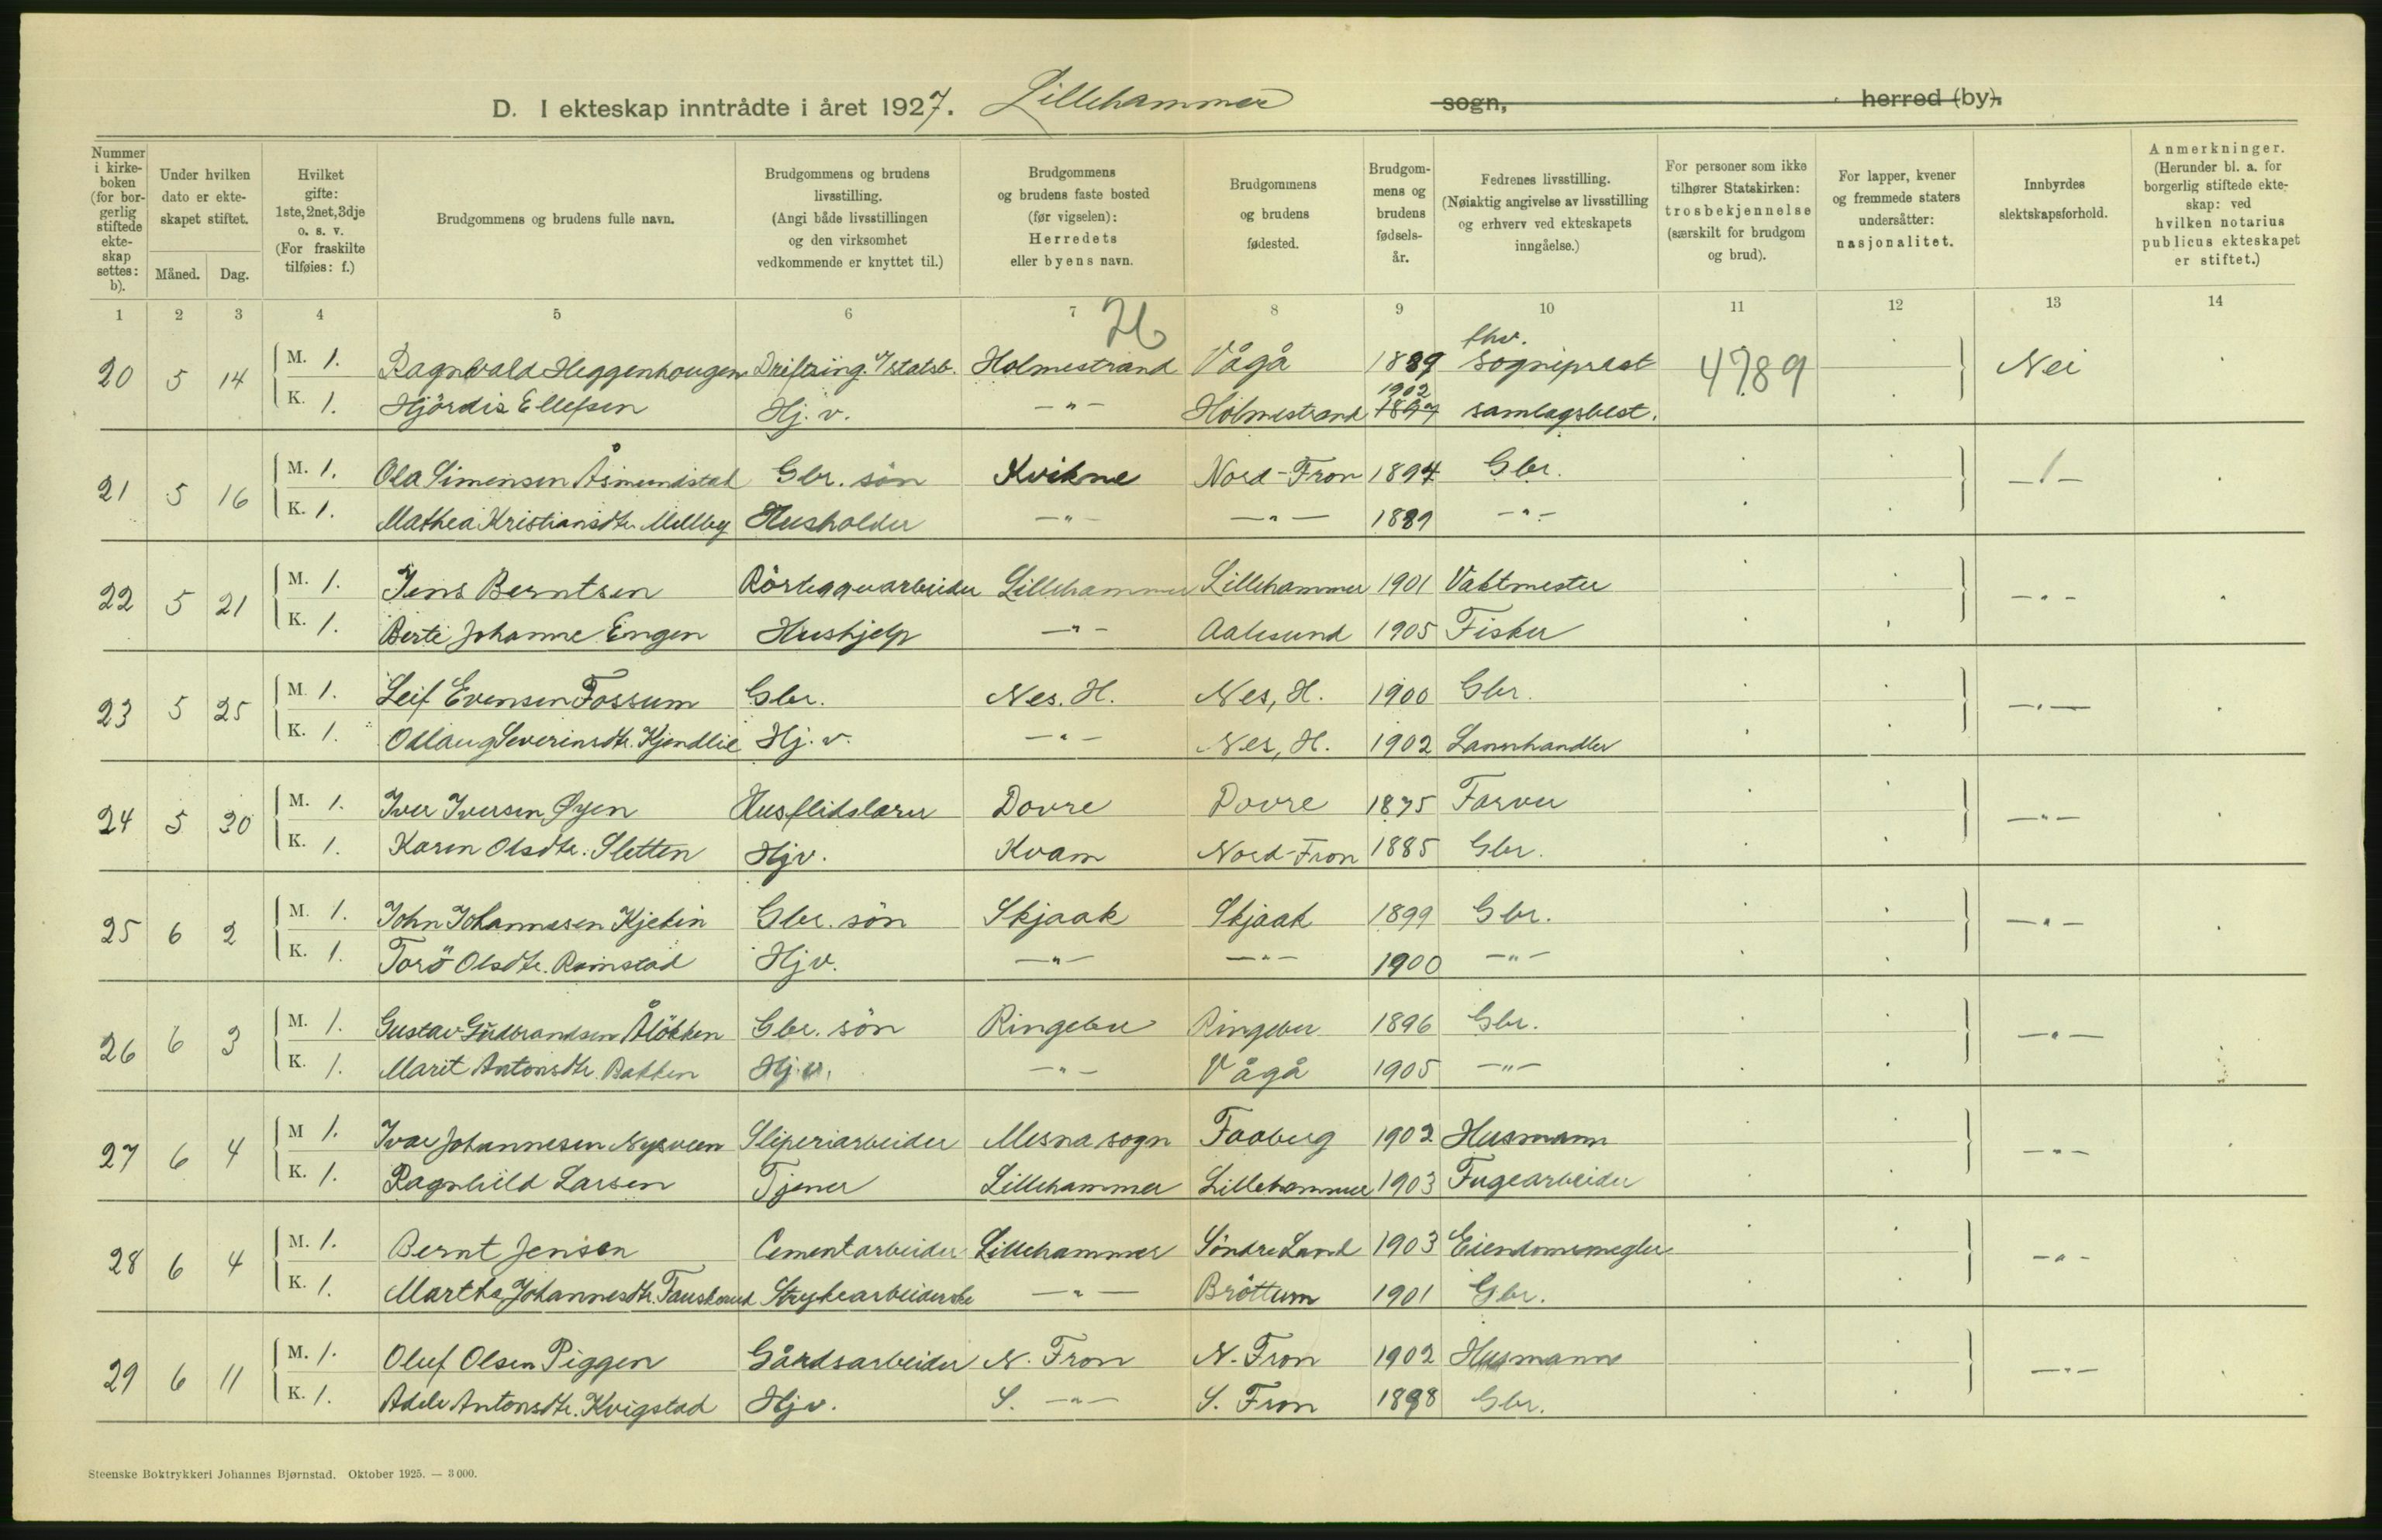 D. I ekteskap inntrådte i året 1927. Lillehammer sogn, herred (by).
Nummer i kirkeboken (for borgerlig stiftede ekteskap settes: b).
Under hvilken dato er ekteskapet stiftet.
Måned. Dag.
Hvilket gifte: 1ste, 2net, 3dje o. s. v. (For fraskilte tilføies: f.)
Brudgommens og brudens fulle navn.
Brudgommens og brudens livsstilling. (Angi både livsstillingen og den virksomhet vedkommende er knyttet til.)
Brudgommens og brudens faste bosted (før vigselen): Herredets eller byens navn.
Brudgommens og brudens fødested.
Brudgommens og brudens fødselsår.
Fedrenes livsstilling. (Nøiaktig angivelse av livsstilling og erhverv ved ekteskapets inngåelse.)
For personer som ikke tilhører Statskirken: trosbekjennelse (særskilt for brudgom og brud).
For lapper, kvener og fremmede staters undersåtter: nasjonalitet.
Innbyrdes slektskapsforhold.
Anmerkninger. (Herunder bl. a. for borgerlig stiftede ekteskap: ved hvilken notarius publicus ekteskapet er stiftet.)
1 2 3 4 5 6 7 8 9 10 11 12 13 14
20 5 14 M. 1. Ragnvald Heggenhougen Driftsing. v/statsb. Holmestrand Vågå 1889 fhv. sogneprest 4789 Nei
K. 1. Hjördis Ellefsen Hj. v. —"— Holmestrand 1902 1897 samlagsbest.
21 5 16 M. 1. Ola Simensen Åsmundstad Gbr. sön Kvikne Nord-Fron 1894 Gbr. —/—
K. 1. Mathea Kristiansdtr. Millby Husholder —"— —"— 1889 —"—
22 5 21 M. 1. Jens Berntsen Rörleggerarbeider Lillehammer Lillehammer 1901 Vaktmester —"—
K. 1. Berte Johanne Engen Hushjelp —"— Aalesund 1905 Fisker
23 5 25 M. 1. Leif Evensen Fossum Gbr. Nes. H. Nes, H. 1900 Gbr. —"—
K. 1. Odlaug Severinsdtr. Kjendlie Hj. v. —"— Nes, H. 1902 Lannhandler
24 5 30 M. 1. Iver Iversen Øyen Husflidslærer Dovre Dovre 1875 Farver —"—
K. 1. Karen Olsdtr. Sletten Hjv. Kvam Nord-Fron 1885 Gbr.
25 6 2 M. 1. John Johannesen Kjekin Gbr. sön Skjaak Skjaak 1899 Gbr. —"—
K. 1. Torö Olsdtr. Ramstad Hjv. —"— —"— 1900 —"—
26 6 3 M. 1. Gustav Gudbrandsen Ålökken Gbr. sön Ringebu Ringebu 1896 Gbr. —"—
K. 1. Marit Antonsdtr. Bakken Hj. v. —"— Vågå 1905 —"—
27 6 4 M 1. Ivar Johannesen Nysveen Sliperiarbeider Mesna sogn Faaberg 1902 Husmann —"—
K. 1. Ragnhild Larsen Tjener Lillehammer Lillehammer 1903 Fugearbeider
28 6 4 M. 1. Bernt Jensen Cementarbeider Lillehammer Söndre Land 1903 Eiendomsmegler —"—
K. 1. Martha Johannesdtr. Fauskerud Strykearbeiderske —"— Bröttum 1901 Gbr.
29 6 11 M. 1. Oluf Olsen Piggen Gårdsarbeider N. Fron N. Fron 1902 Husmann —"—
K. 1. Adele Antonsdtr. Kvigstad Hjv. S. —"— S. Fron 1898 Gbr.
Steenske Boktrykkeri Johannes Bjørnstad. Oktober 1925. — 3000.